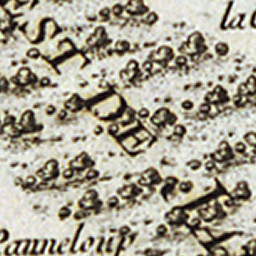 EST DE
la
Panneloup